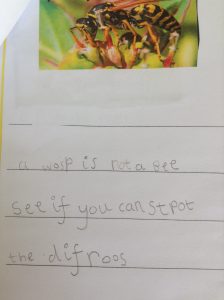 a wosp is not a bee
see if you can stpot
the difroos